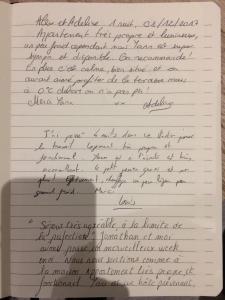 Alex et Adeline, 1 nuit, 02/12/2017
Appartement très propre et lumineux,
un peu froid cependant mais Yann est super
sympa et disponible. On recommande!
En plus c'est calme, bien situé et on
aurait aimé profiter de la terrasse mais
à 0°C dehors on n'a pas pu!
Merci Yann xx Adeline
J'ai passé 4 nuits dans ce studio pour
le travail. Logement très propre et
fonctionnel. Yann est à l'écoute et très
accueillant.
Merci
Louis
Séjour très agréable, à la limite de
la perfection! Jonathan et moi
avons passé un merveilleux week
end. Nous nous sentions comme à
la maison. Appartement très propre et
fonctionnel. Yann est un hôte prévenant,